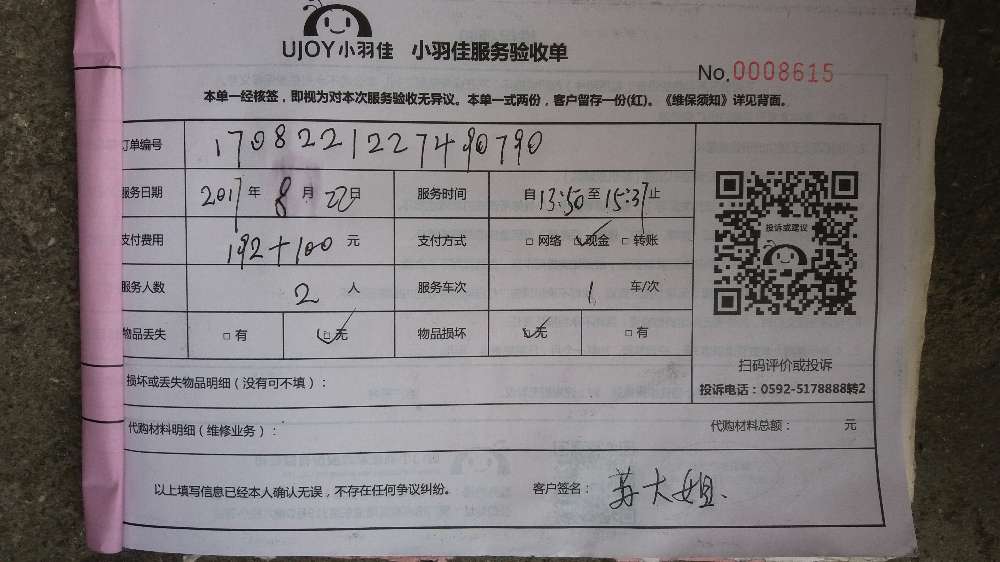 UJOY小羽佳 小羽佳服务验收单
No.0008615
本单一经核签，即视为对本次服务验收无异议。本单一式两份，客户留存一份(红)。《维保须知》详见背面。
订单编号 170822122749079​0
服务日期 2017年8月22日 服务时间 自13:50至15:37止
支付费用 192+100元 支付方式 □网络 ☑现金 □转账
服务人数 2人 服务车次 1车/次
物品丢失 □有 ☑无 物品损坏 ☑无 □有
投诉或建议
扫码评价或投诉
投诉电话：0592-5178888转2
损坏或丢失物品明细（没有可不填）：
代购材料明细（维修业务）： 代购材料总额： 元
以上填写信息已经本人确认无误，不存在任何争议纠纷。 客户签名：苏大姐